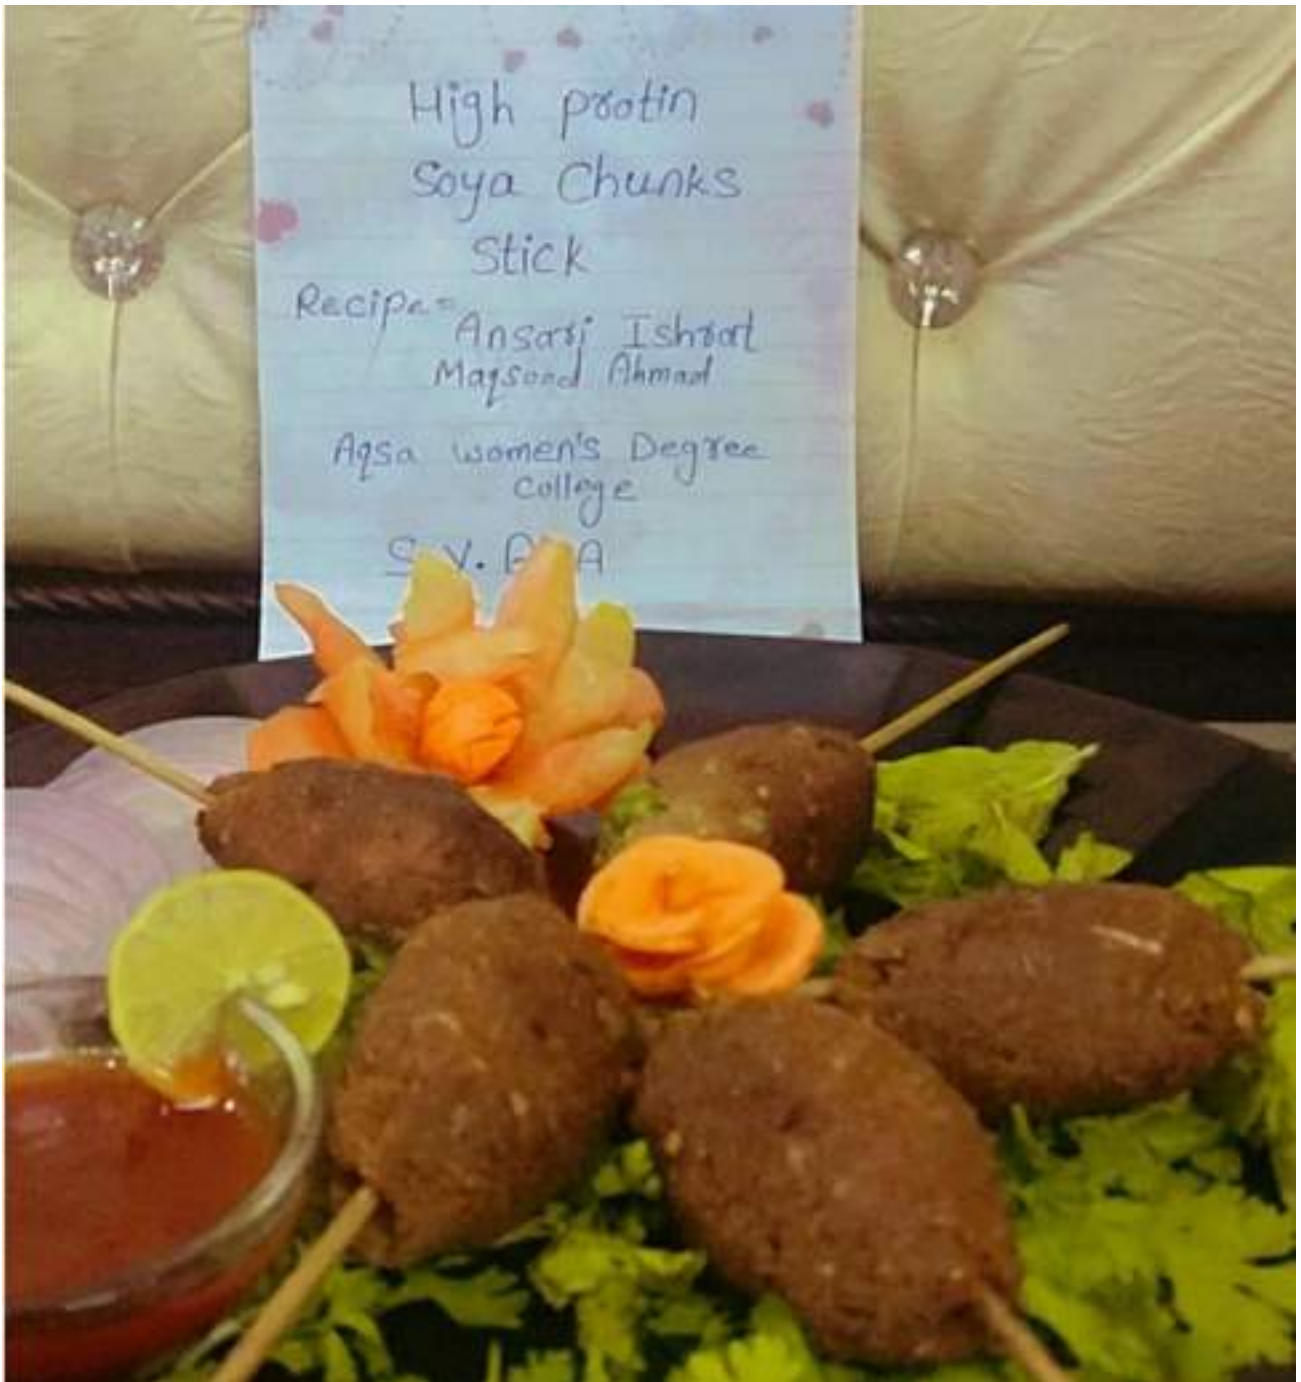 High protin
Soya Chunks
Stick
Recipe=
Ansari Ishrat
Maqsood Ahmad
Aqsa women's Degree
college
S.Y.